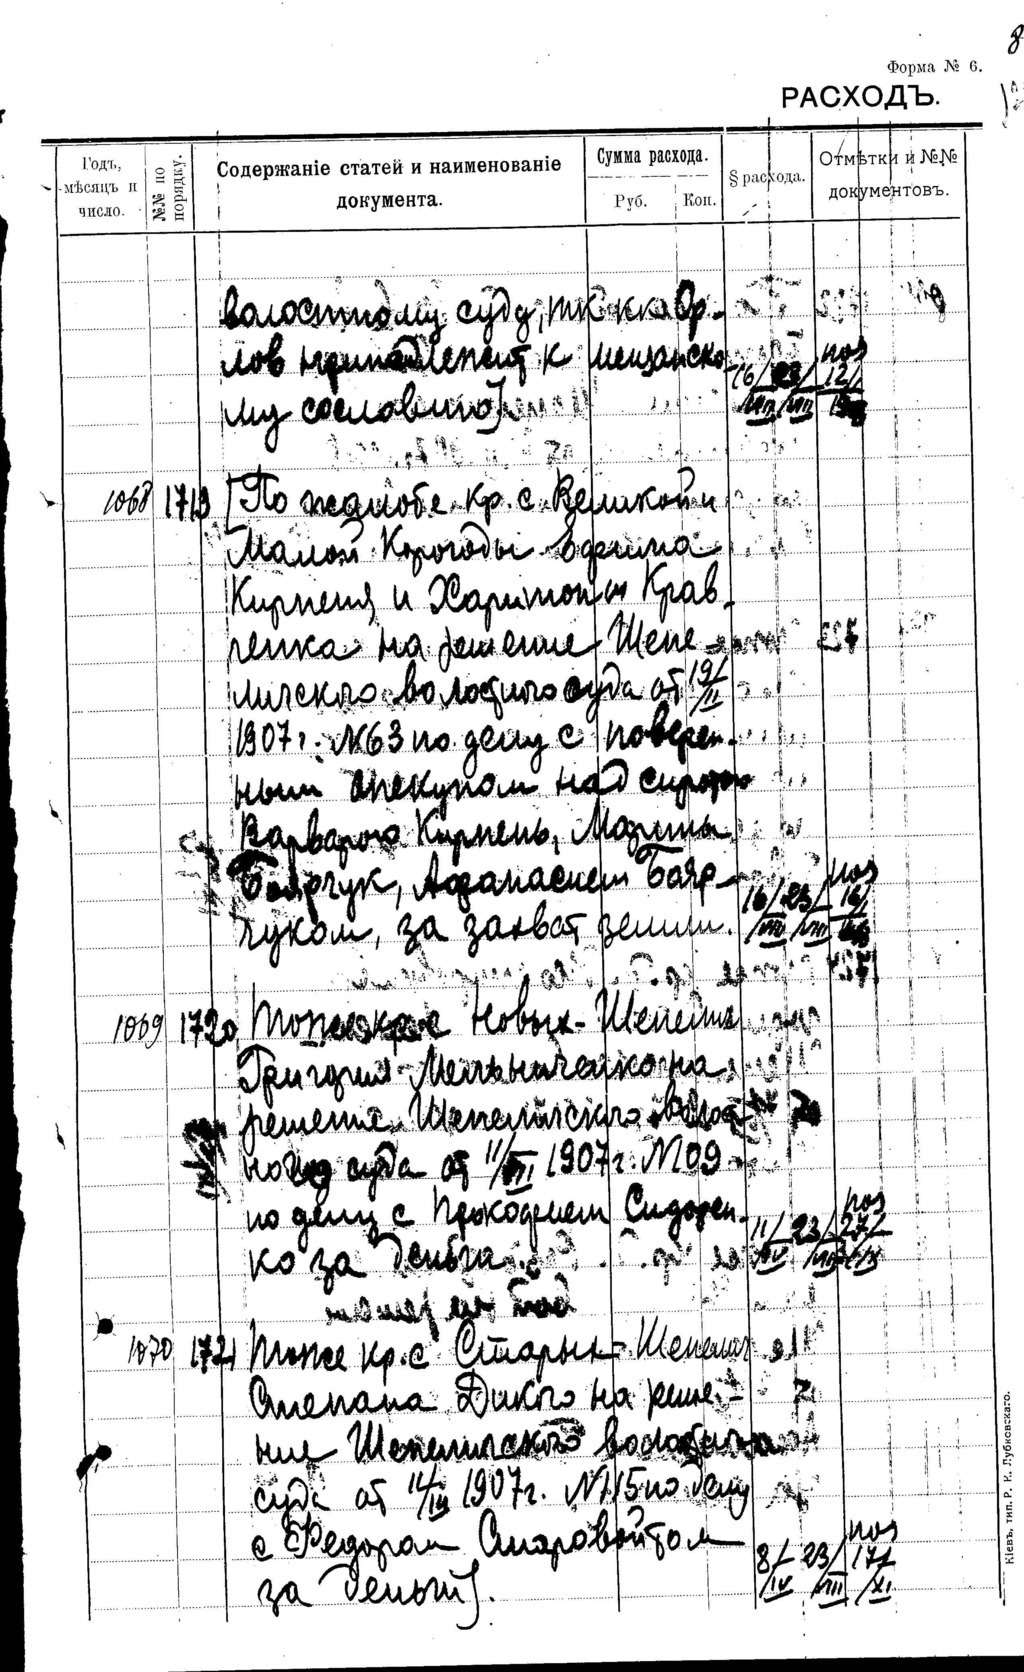 Форма № 6.
РАСХОДЪ.
Годъ, мѣсяцъ и число.
№№ по порядку.
Содержаніе статей и наименованіе документа.
Сумма расхода.
Руб. Коп.
§ расхода.
Отмѣтки и №№ документовъ.
волостному суду, т.к. Ор-
лов принадлежит к мещанско-
му сословию]
1068 1719 [По жалобе кр. с. Великой и
Малой Корогоды
Кирпеня и Харитона Крав-
ченка на решение Шепе-
личского волостного суда от 19/II
1907 г. №63 по делу с поверен-
ным опекуном над
Варварою Кирпень, Марины
Боярчук, Афанасием Бояр-
чуком, за захват земли.
1069 1720 Тоже кр. с Новых-Шепелич
Григория Мельниченко на
решение Шепеличского волост-
ного суда от 11/III 1907 г. №109
по делу с Прокофием Сидорен-
ко за деньги
1070 1721 Тоже кр. с Старых-Шепелич
Степана Дикого на реше-
ние Шепеличского волостного
суда от 1907 г. №115 по делу
с Федором Старовойтом
за деньги].
8/IV 23/VIII 17/XI
Кіевъ, тип. Р. К. Лубковскаго.